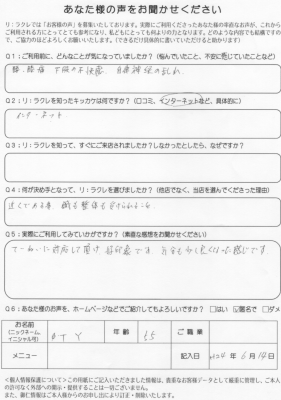 あなたの声をお聞かせください
リ:ラクレでは「お客様の声」を募集いたしております。実際にご利用くださったあなた様の率直なお声が、これから
ご利用される方にとってとても参考になり、私どもにとっても何よりの力となります。どのような内容でも結構ですの
で、ご協力のほどよろしくお願いいたします。(できるだけ具体的に書いていただけると助かります)
Q1:ご利用前に、どんなことが気になっていましたか?(悩んでいたこと、不安に感じていたことなど)
腰、膝痛 下肢の不快感、自律神経の乱れ、
Q2:リ:ラクレを知ったキッカケは何ですか?(口コミ、インターネットなど、具体的に)
インターネット
Q3:リ:ラクレを知って、すぐにご来店されましたか?しなかったとしたら、なぜですか?
Q4:何が決め手となって、リ:ラクレを選びましたか?(他店でなく、当店を選んでくださった理由)
Q5:実際にご利用してみていかがですか?(素直な感想をお聞かせください)
Q6:あなた様のお声を、ホームページなどでご紹介してもよろしいですか? □はい ☑匿名で □ダメ
お名前
(ニックネーム、
イニシャル可)
OTY
年齢
55
ご職業
メニュー
記入日
6月14日
<個人情報保護について>この用紙にご記入いただきました情報は、貴重なお客様データとして厳重に管理し、ご本人
の許可なく外部への開示・提供することは一切ございません。
また、御仁情報はご本人様からのお申し出により訂正・削除いたします。